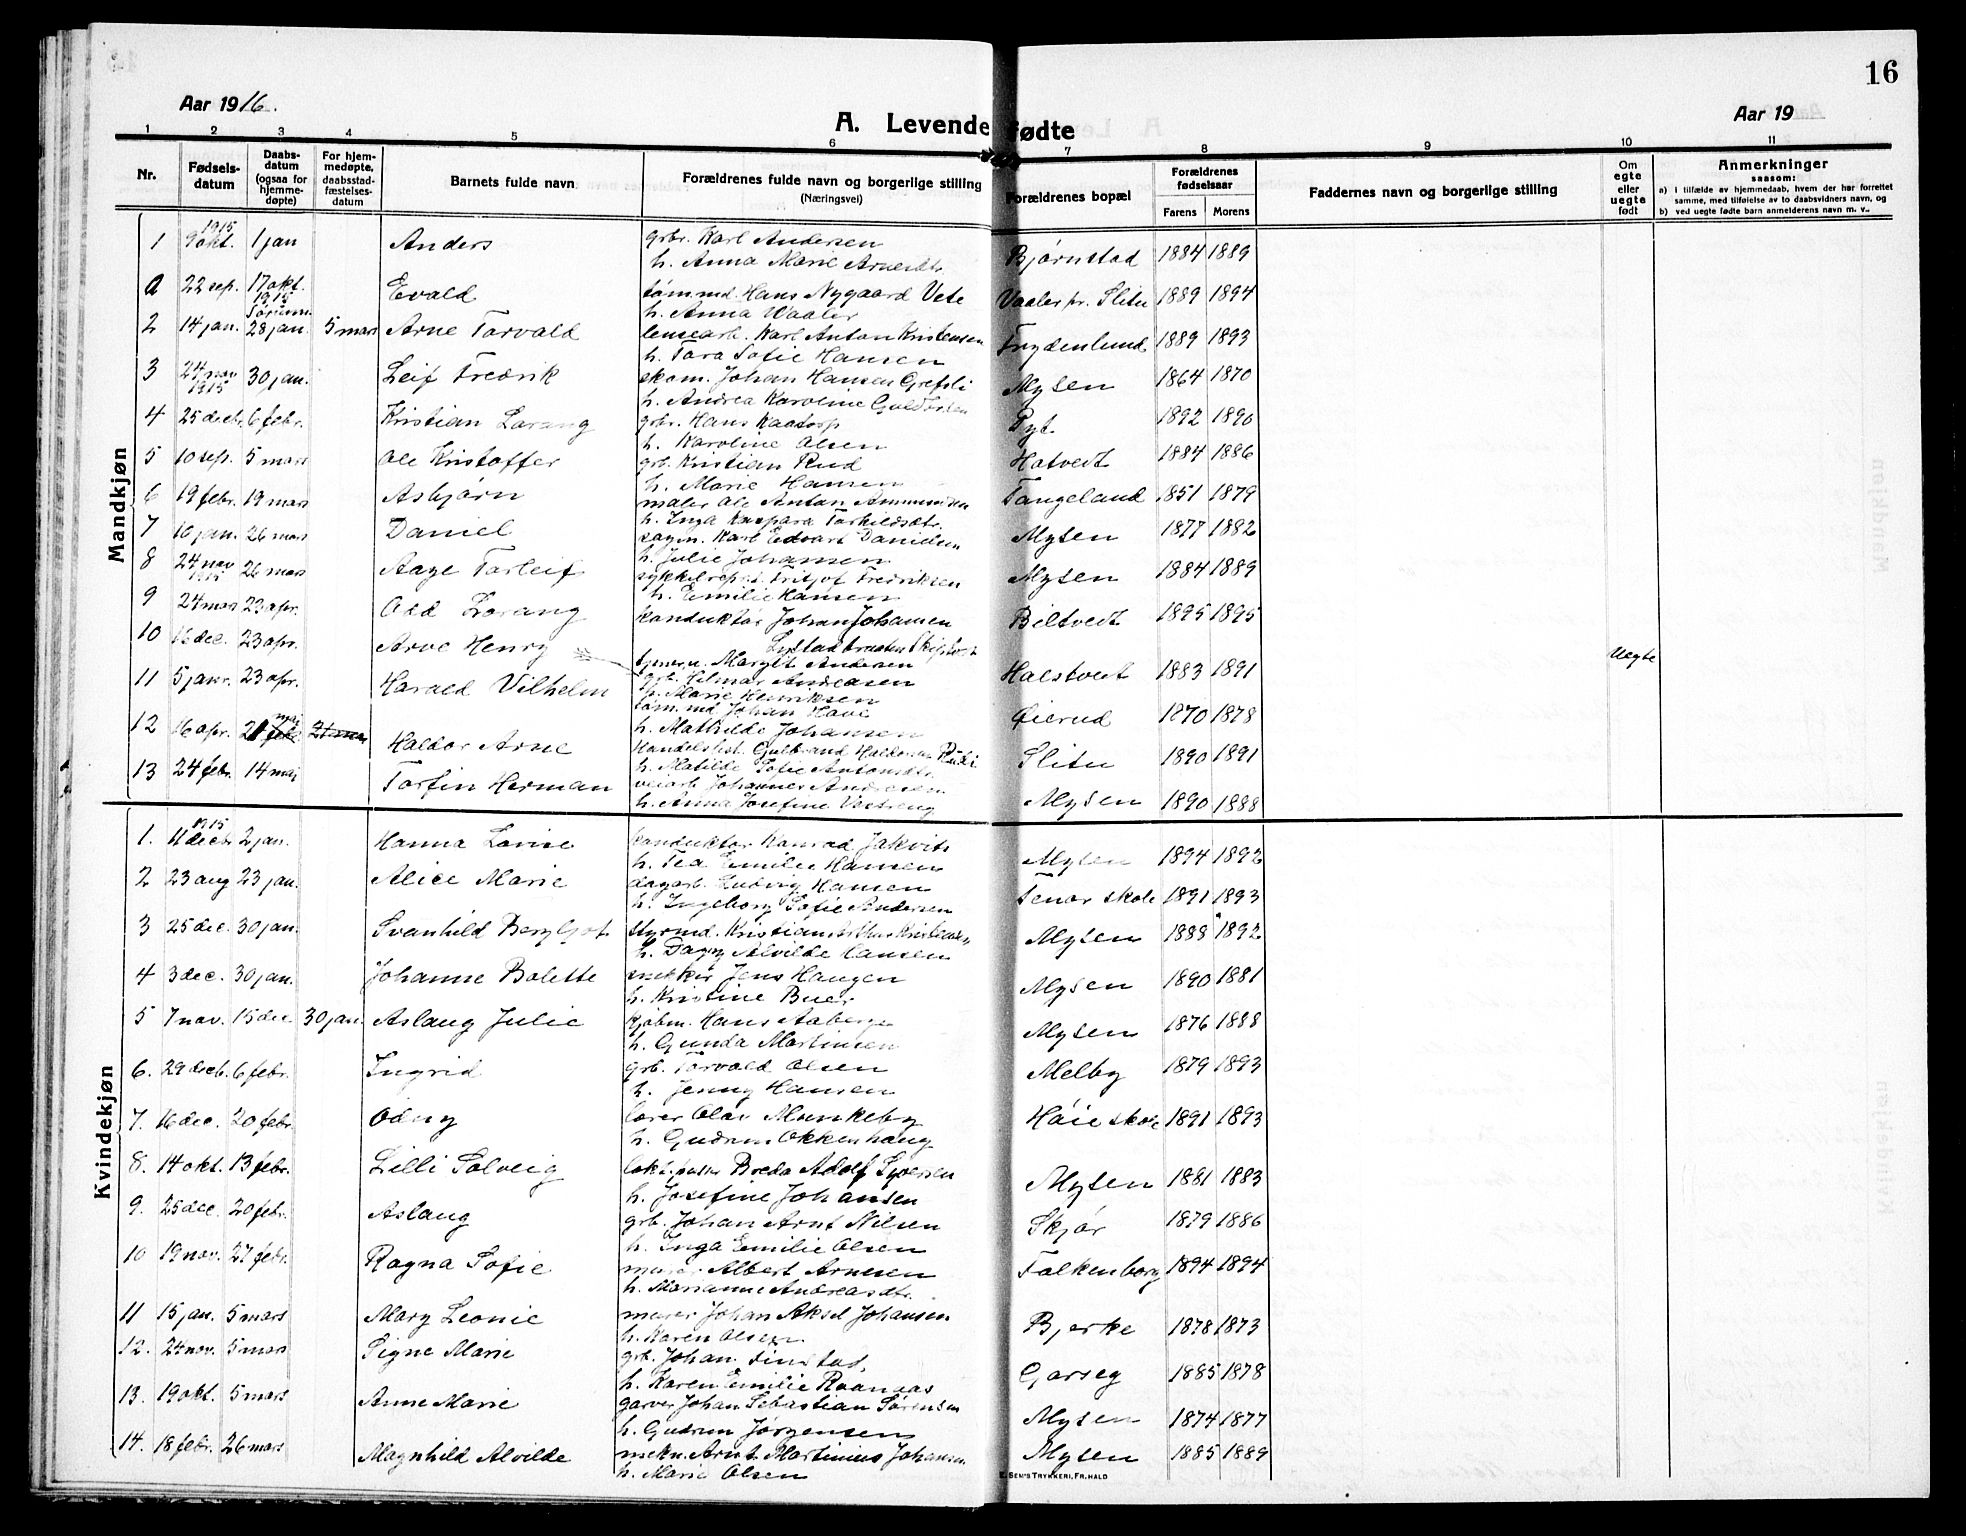 16
Aar 1916.
Aar 19
A. Levende fødte
1 2 3 4 5 6 7 8 9 10 11
Nr.
Fødsels-
datum
Daabs-
datum
(ogsaa for
hjemme-
døpte)
For hjem-
medøpte,
daabsstad-
fæstelses-
datum
Barnets fulde navn
Forældrenes fulde navn og borgerlige stilling
(Næringsvei)
Forældrenes bopæl
Forældrenes
fødselsaar
Farens Morens
Faddernes navn og borgerlige stilling
Om
egte
eller
uegte
født
Anmerkninger
saasom:
a) i tilfælde av hjemmedaab, hvem der har forrettet
samme, med tilføielse av to daabsvidners navn, og
b) ved uegte fødte barn anmelderens navn m. v..
Mandkjøn
1 1915 9 okt. 1 jan Anders grbr. Karl Andersen Bjørnstad 1884 1889
h. Anna Marie Arnesdtr.
a 22 sep. 17 okt. 1915 Evald tømmd. Hans Nygaard Vete Vaaler pr. Slitu 1889 1894
h. Anna Vaaler
2 14 jan. 28 jan. 5 mars Arne Torvald lensearb. Karl Anton Kristensen Frydenlund 1889 1893
h. Tora Sofie Hansen
3 24 nov 1915 30 jan. Leif Fredrik skom. Johan Hansen Grefsli Mysen 1864 1870
h. Andrea Karoline
4 25 decbr. 6 febr. Kristian Lorang grbr. Hans Kaatorp Pyt. 1892 1890
h. Karoline Olsen
5 10 sep. 5 mars Ole Kristoffer grb. Kristian Rud Hotvedt 1884 1886
h. Marie Hansen
6 19 febr. 19 mars Asbjørn maler Ole Anton Ammundsen Tangeland 1851 1879
h. Inga Kaspara Torkildsdtr.
7 16 jan. 26 mars Daniel sagm. Karl Edvart Danielsen Mysen 1877 1882
h. Julie Johansen
8 24 nov 1915 26 mars Aage Torleif sykkelrep. Fritjof Fredriksen Mysen 1884 1889
h. Emilie Hansen
9 24 mars 23 apr. Odd Lorang konduktør Johan Johansen Biltvedt 1895 1895
10 dec. 23 apr. Arve Henry
tjener. u. Margit Andersen Halstvedt 1883 1891 Uegte
11 5 janr. 23 apr. Harald Vilhelm grb. Hilmar Andreasen
h. Marie Henriksen
12 16 apr. 21 mai Haldor Arne tøm.md Johan Have Øierud 1870 1878
h. Mathilde Johansen
Handelsbst. Gulbrand Haldorsen Rudi Slitu 1890 1891
h. Matilde Sofie Antonsdtr.
13 24 febr. 14 mai Torfin Herman veiarb. Johannes Andresen Mysen 1890 1888
h. Anna Josefine Vestreng
Kvindekjøn
1. 1915 11 decbr 2 jan. Hanna Lovise konduktør Konrad Jakvits Mysen 1894 1892
h. Tea Emilie Hansen
2 23 aug 23 jan. Alice Marie dagarb. Ludvig Hansen Tenor skole 1891 1893
h. Ingeborg Sofie Andersen
3 25 dec. 30 jan. Svanhild Bergljot styrmd. Kristian Arthur Kristiansen Mysen 1888 1892
h. Dagny Alvilde Hansen
4 3 dec. 30 jan. Johanne Bolette snekker Jens Haugen Mysen 1890 1881
h. Kristine Buer
5 7 nov. 15 dec 30 jan. Aslaug Julie kjøbm. Hans Aaberge Mysen 1876 1888
h. Gunda Martinsen
6. 29 decb. 6 febr. Ingrid grb. Torvald Olsen Melby 1879 1893
h. Jenny Hansen
7. 16 dec. 20 febr. Odny lærer Olav Munkeby Høie skole 1891 1893
h. Gudrun Okkenhaug
8. 14 okt. 13 febr. Lilli Solveig lok. pusser Breda Adolf Syversen Mysen 1881 1883
h. Josefine Johansen
9. 25 dec. 20 febr. Aslaug grb. Johan Arnt Nilsen Skjør 1879 1886
h. Inga Emilie Olsen
10 19 nov. 27 febr. Ragna Sofie murer Albert Arnesen Falkenborg 1894 1894
h. Marianne Andreasdtr.
11 15 jan. 5 mars Mary Leonie murer Johan Aksel Johansen Bjerke 1878 1873
h. Karen Olsen
12. 24 nov. 5 mars Signe Marie grb. Johan Finstad, Garseg 1885 1878
h. Karen Emilie Raanaas
13. 19 okt. 5 mars Anne Marie garver Johan Sebastian Sørensen Mysen 1874 1877
h. Gudrun Jørgensen
14. 18 febr. 26 mars Magnhild Alvilde mekn. Arnt Martinius Johansen Mysen 1885 1889
h. Marie Olsen
E. SEM'S TRYKKERI, FR.HALD